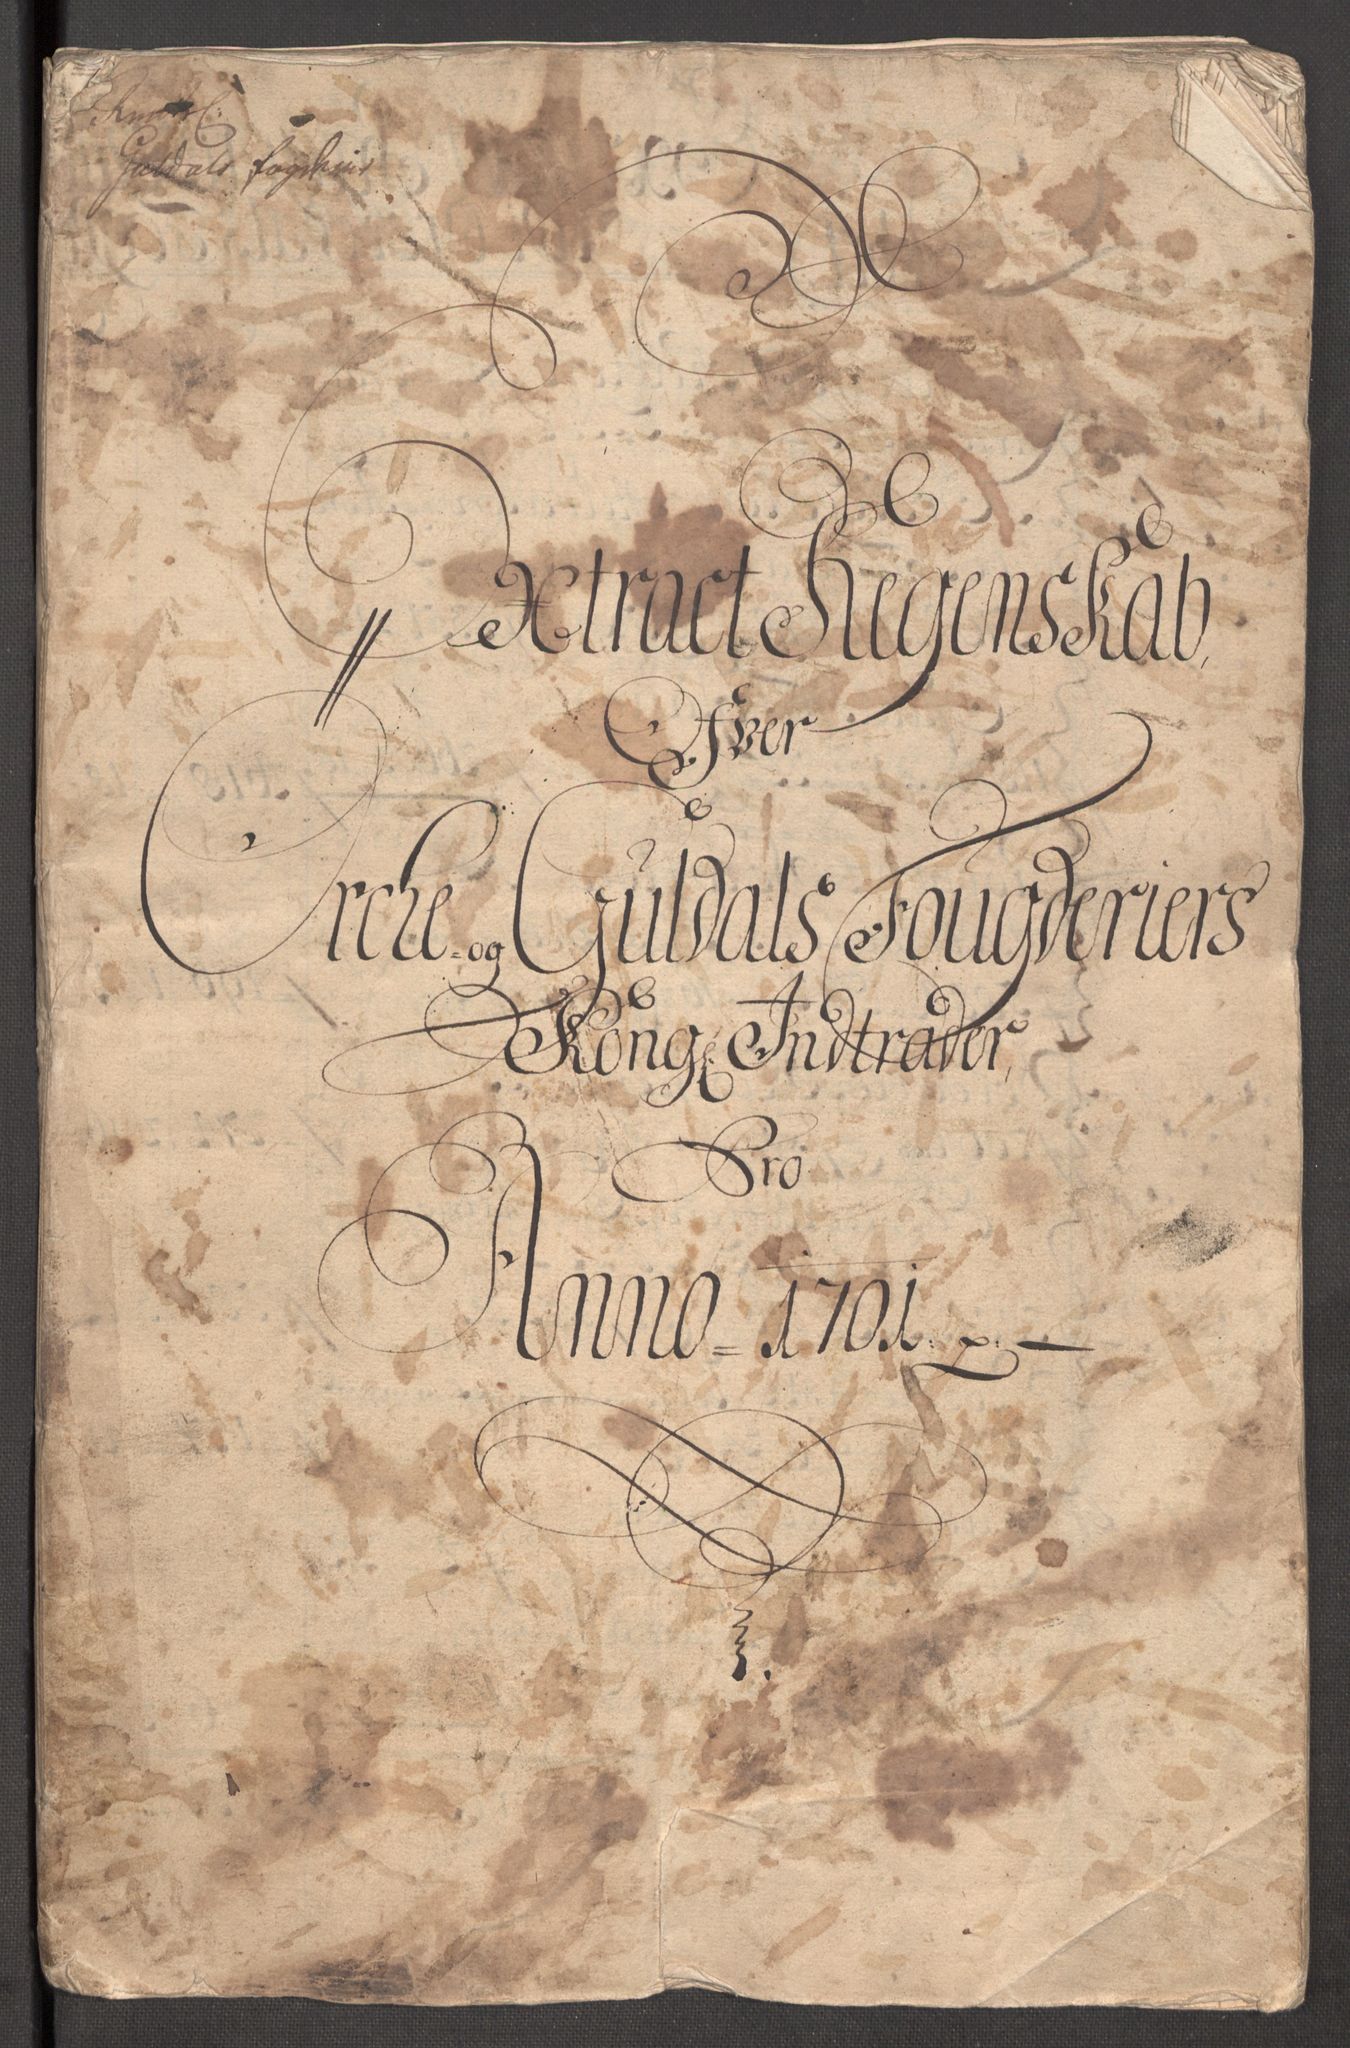 Guldals fogderie
Extract Regenskab,
Ofver
Orche=og Guldals Fougderiers
Kong: Indtrader,
Pro
Anno=1701.